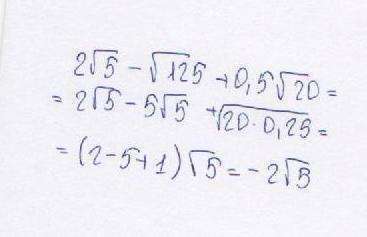 2√5 − √125 + 0,5√20 =
= 2√5 − 5√5 + √20·0,25 =
= (2−5+1)√5 = −2√5